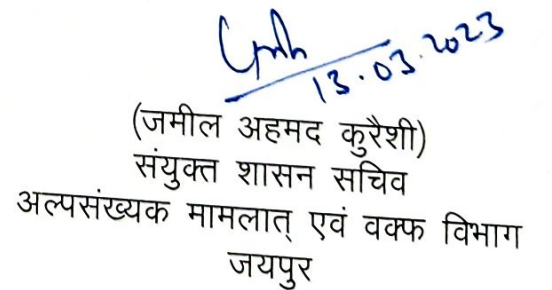 13.03.2023
(जमील अहमद कुरैशी)
संयुक्त शासन सचिव
अल्पसंख्यक मामलात् एवं वक्फ विभाग
जयपुर